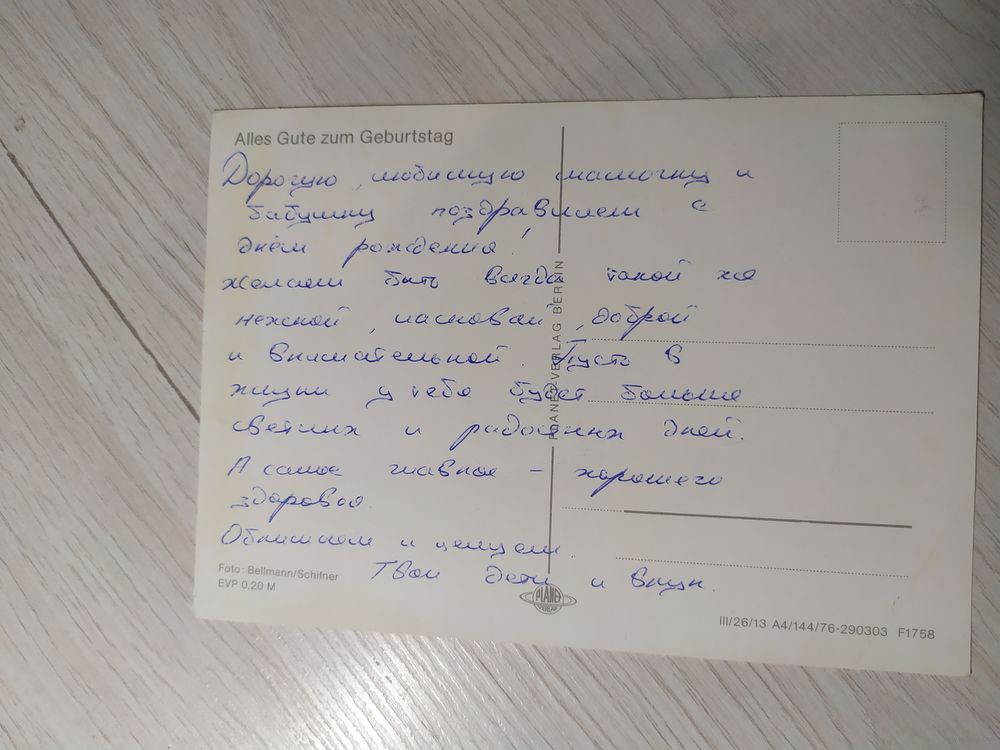 Alles Gute zum Geburtstag
Дорогую, любимую мамочку и
бабушку поздравляем с
днём рождения!
желаем быть всегда такой же
нежной, ласковой, доброй
и внимательной. Пусть в
жизни у тебя будет больше
светлых и радостных дней.
А самое главное – хорошего
здоровья.
Обнимаем и целуем.
Твои дети и внук.
Foto: Bellmann/Schifner
EVP 0,20 M
PLANET-VERLAG BERLIN
PLANET
VERLAG
III/26/13 A4/144/76-290303 F1758